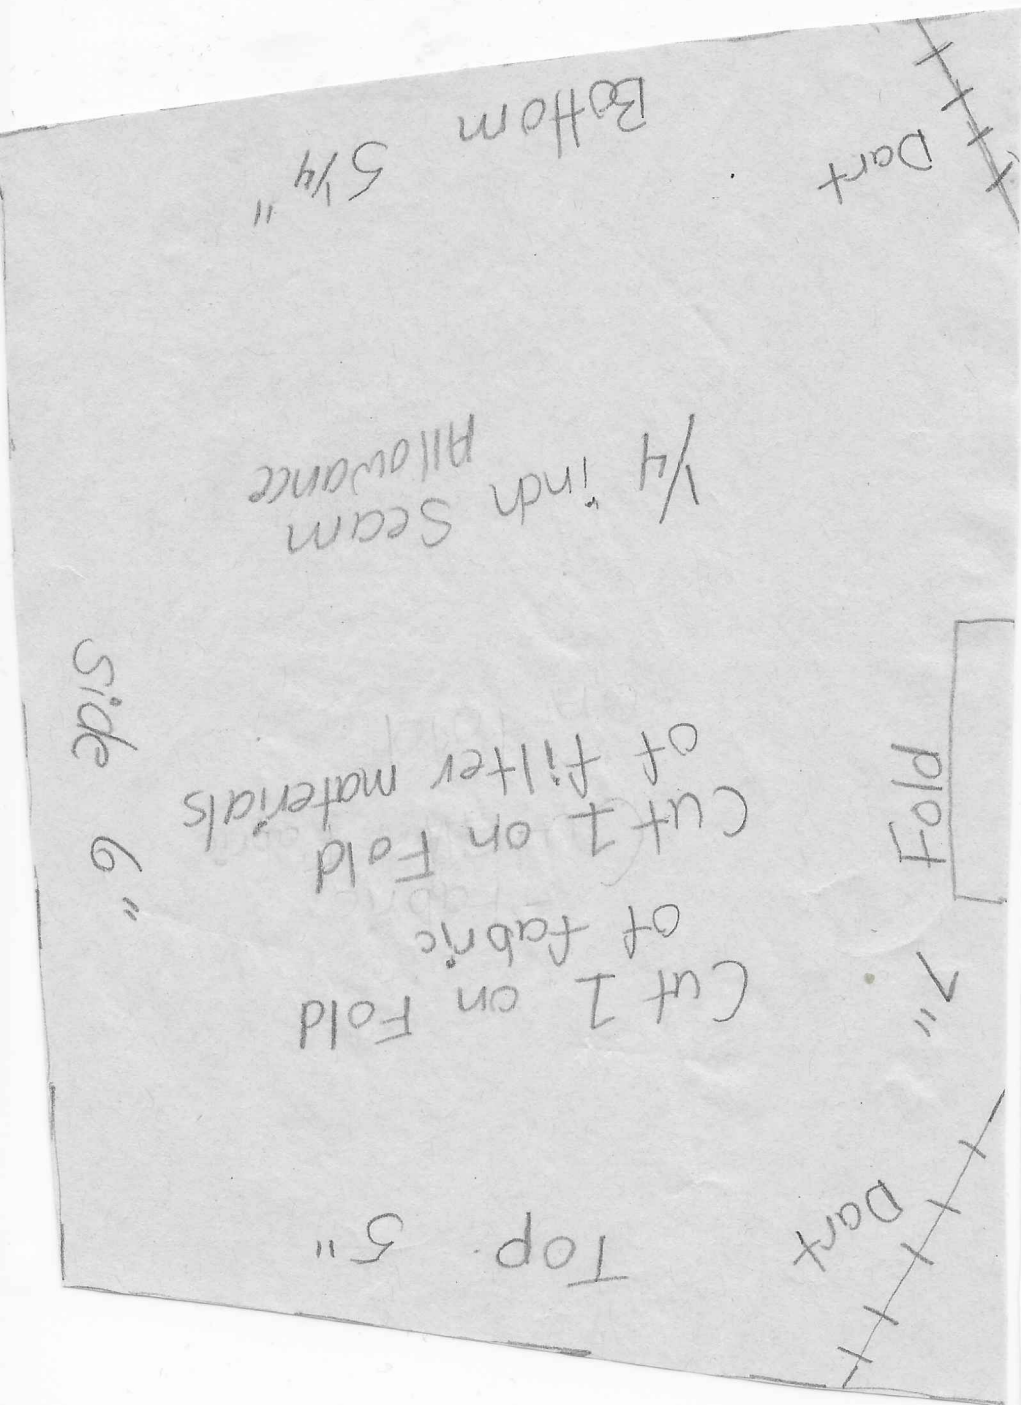 Top 5"
Dart
7"
Cut 1 on Fold
of fabric
Cut 1 on Fold
of filter materials
Fold
Side 6"
1/4 inch Seam
Allowance
Dart
Bottom 5 1/4"